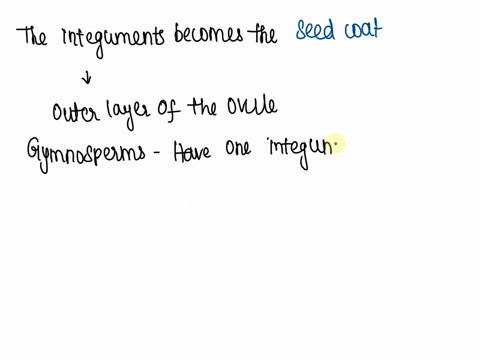 The integuments becomes the seed coat
↓
outer layer of the ovule
Gymnosperms - Have one integun